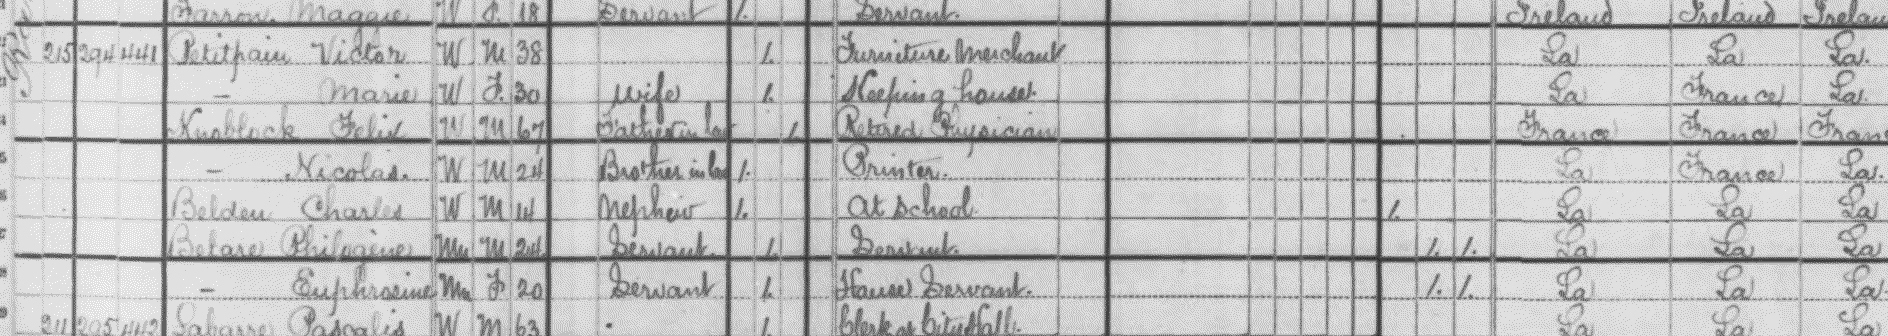 Farron, Maggie W F. 18 Servant 1. Servant. Ireland Ireland Ireland
215 294 441 Petitpain Victor W M 38 1. Furniture Merchant La La La.
— Marie W F. 30 Wife 1. Keeping house. La France La.
Knoblock Felix W M 67 Father in law 1. Retired Physician France France France
— Nicolas. W M 24 Brother in law 1. Printer. La France La.
Belden Charles W M 14 Nephew 1. At School 1. La La La
Betare Philogène Mu M 24 Servant. 1. Servant. 1. 1. La La La
— Euphrosine Mu F 20 Servant 1. House Servant. 1. 1. La La La
211 295 442 Labarre Pascalis W M 63 1. Clerk at City Hall. La La La